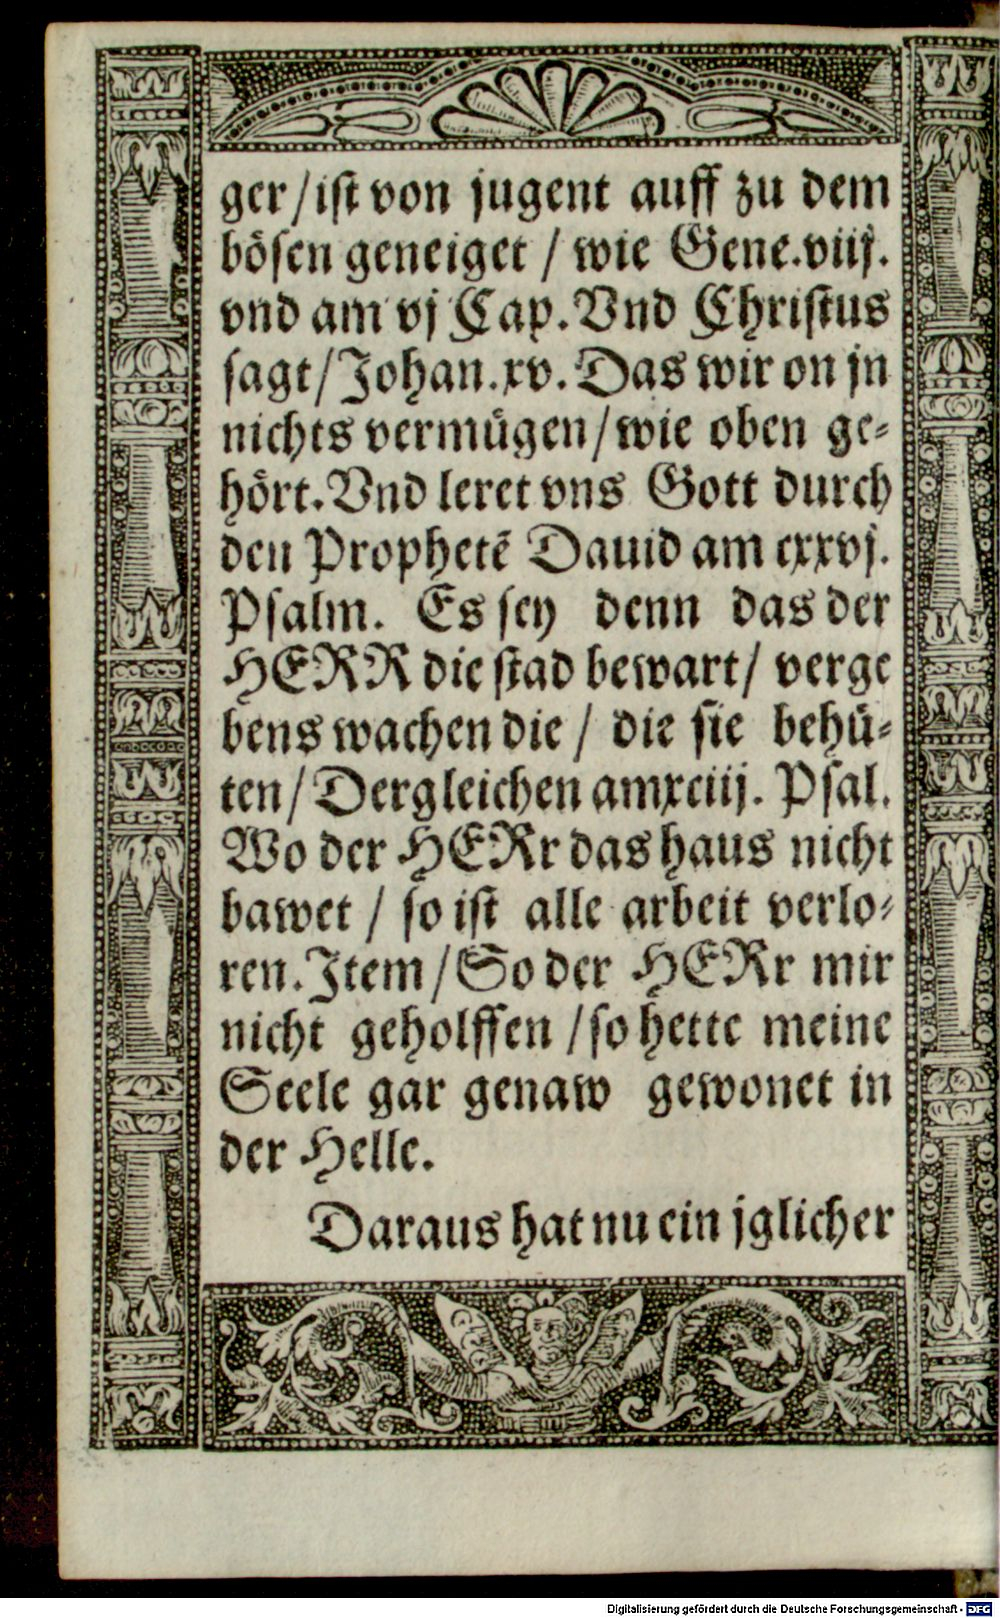 ger/ist von jugent auff zu dem
bösen geneiget / wie Gene.viij.
vnd am vj Cap. Vnd Christus
sagt/Johan.xv. Das wir on jn
nichts vermügen/wie oben ge-
hört. Vnd leret vns Gott durch
den Prophetē Dauid am cxxvj.
Psalm. Es sey denn das der
HERR die stad bewart/ verge
bens wachen die / die sie behü-
ten/ Dergleichen am xciij. Psal.
Wo der HERr das haus nicht
bawet / so ist alle arbeit verlo-
ren. Item/So der HERr mir
nicht geholffen /so hette meine
Seele gar genaw gewonet in
der Helle.
Daraus hat nu ein jglicher
Digitalisierung gefördert durch die Deutsche Forschungsgemeinschaft - DFG